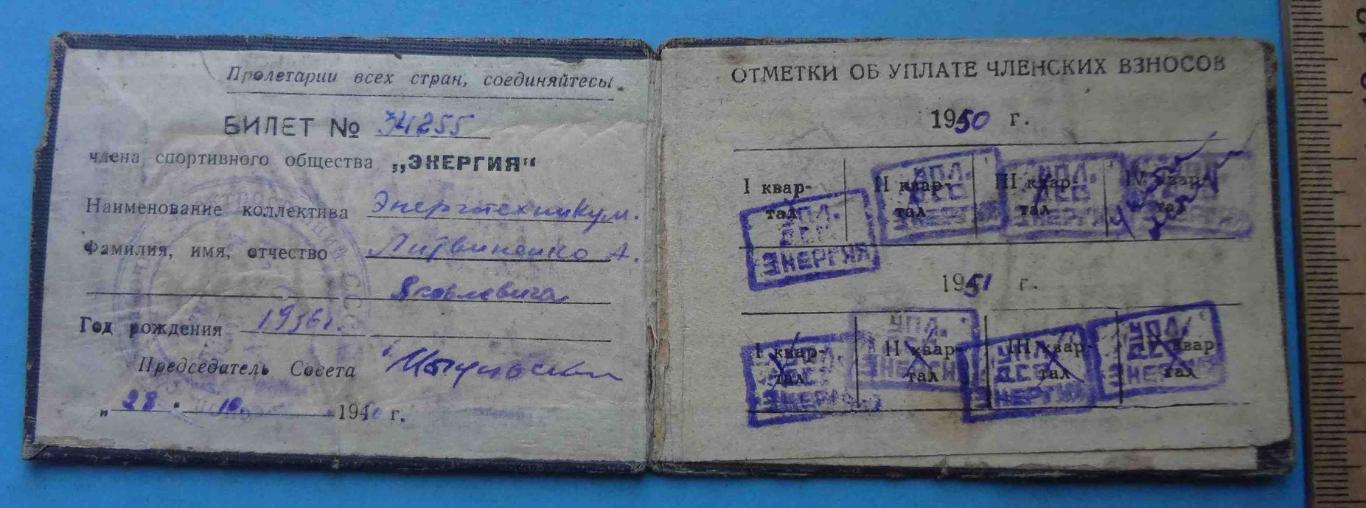 Пролетарии всех стран, соединяйтесь!
БИЛЕТ № 34255
члена спортивного общества „ЭНЕРГИЯ“
Наименование коллектива Энерготехникум.
Фамилия, имя, отчество Литвиненко А.
Яковлевича
Год рождения 1936г.
Председатель Совета
„28 10 19 г.
ОТМЕТКИ ОБ УПЛАТЕ ЧЛЕНСКИХ ВЗНОСОВ
1950 г.
I квар-тал II квар-тал III квар-тал IV квар-тал
УПЛ. ДСО ЭНЕРГИЯ УПЛ. ДСО ЭНЕРГИЯ УПЛ. ДСО ЭНЕРГИЯ
1951 г.
I квар-тал II квар-тал III квар-тал IV квар-тал
УПЛ. ДСО ЭНЕРГИЯ УПЛ. ДСО ЭНЕРГИЯ УПЛ. ДСО ЭНЕРГИЯ УПЛ. ДСО ЭНЕРГИЯ